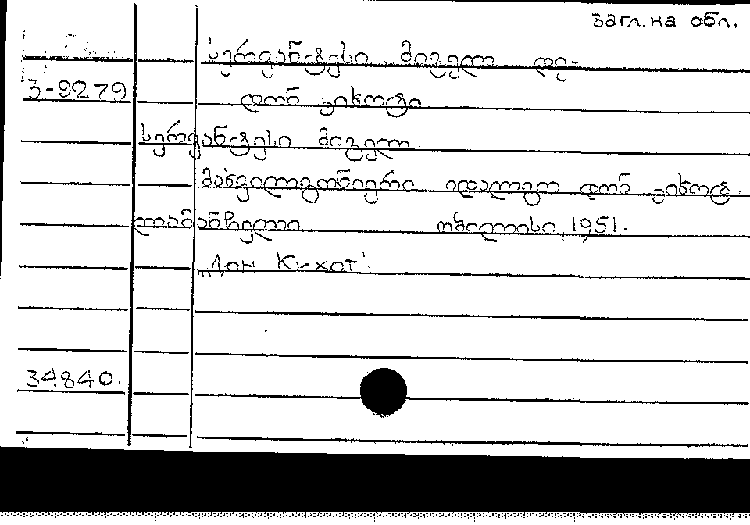 загл. на обл.
სერვანტესი მიგელ დე-
3-9279
დონ კიხოტი
სერვანტესი მიგელ
მახვილგონიერი იდალგო დონ კიხოტ
ლამანჩელი თბილისი, 1951.
„Дон Кихот".
34840.